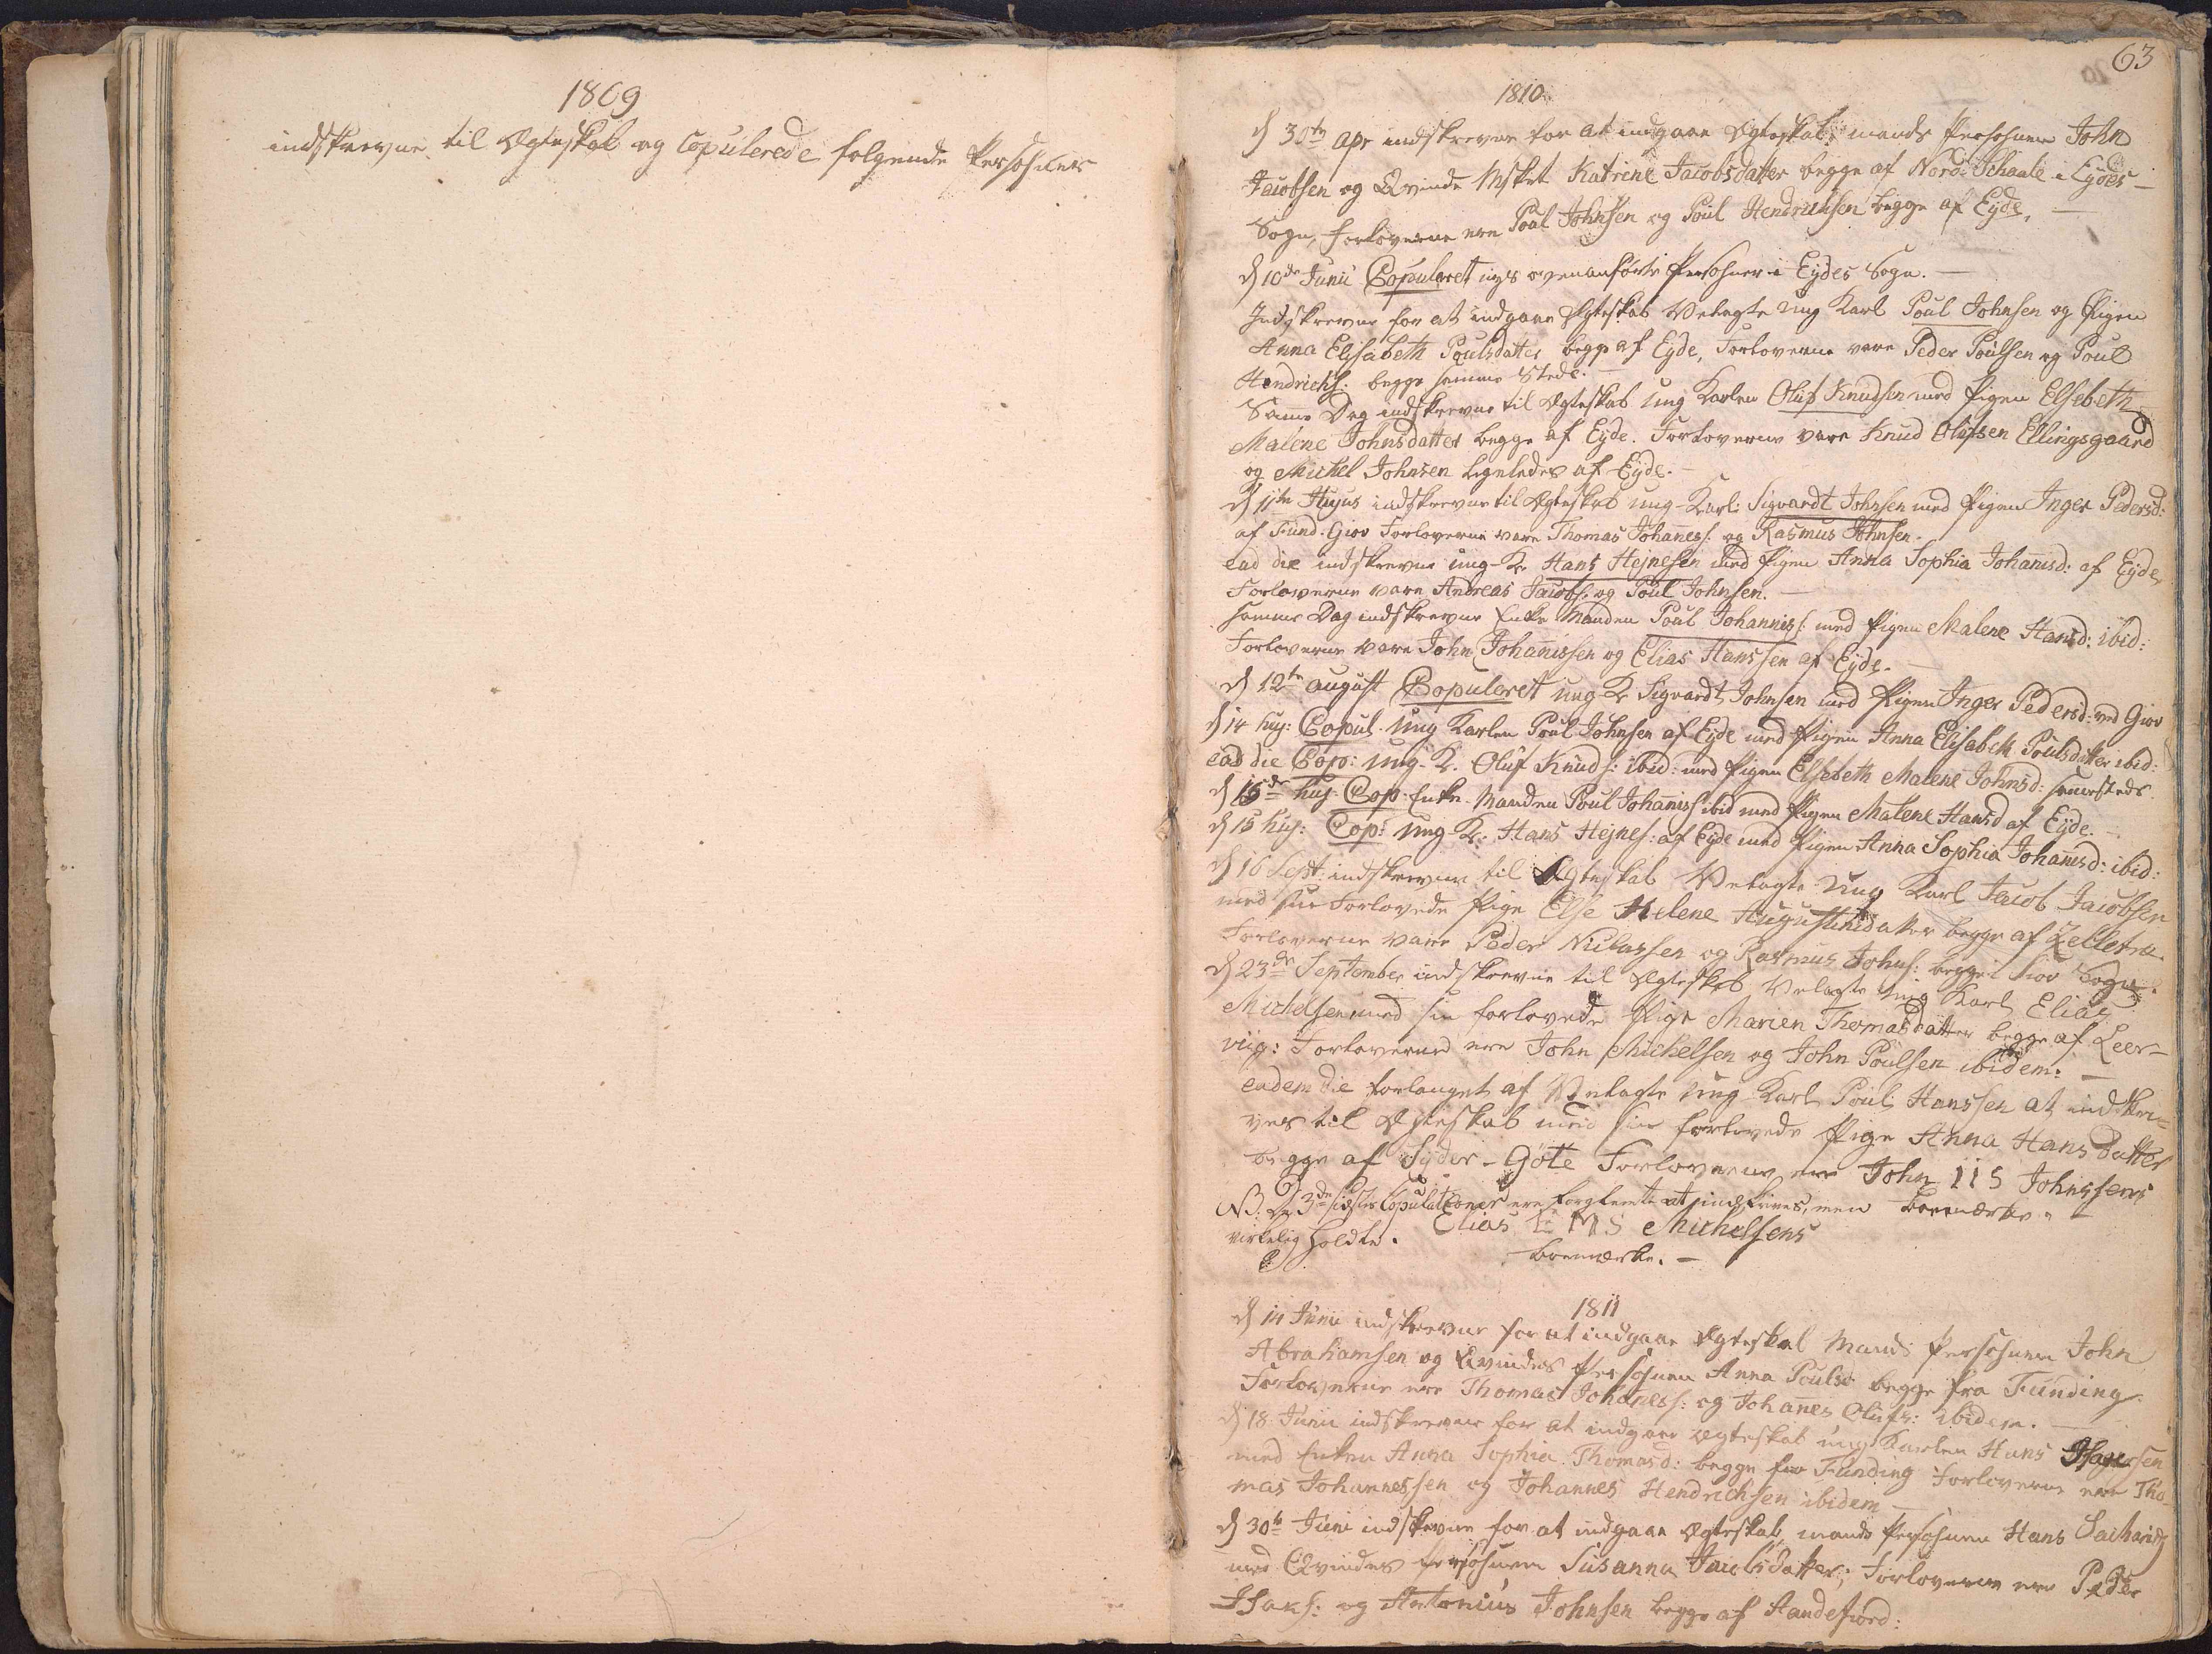 1809
indskrevne til Ægteskab og Copulerede følgende Persohner
63
1810
d 30te Apr indskrevne for at indgaae Ægteskab mands Persohnen John
Jacobsen og Qvinde Msket Katrine Jacobsdatter begge af Nord: Schaale i Eydes
Sogn, Forloverne ere Poul Johnsen og Poul Hendrichsen begge af Eyde.
d 10de Junii Copuleret ovenanførte Persohner i Eydes Sogn.
Indskrevne for at indgaae Ægteskab Velagte ung Karl Poul Johnsen og Pigen
Anna Elisabeth Poulsdatter begge af Eyde, Forloverne vare Peder Poulsen og Poul
Hendrichs: begge samme Stede.
Samme Dag indskrevne til Ægteskab ung Karlen Oluf Knudsen med Pigen Elsebeth
Malene Johnsdatter begge af Eyde. Forloverne vare Knud Olufsen Ellingsgaard
og Michel Johnsen ligeledes af Eyde.
d 11te Hujus indskrevne til Ægteskab ung-Karl: Sigvardt Johnsen med Pigen Inger Pedersd:
af Fund. Giov Forloverne vare Thomas Johaness: og Rasmus Johnsen.
ead die indskrevne ung-K. Hans Hejnesen med Pigen Anna Sophia Johanisd: af Eyde,
Forloverne vare Andreas Jacobs: og Poul Johnsen.
samme Dag indskrevne Enke Manden Poul Johanniss: med Pigen Malene Hansd: ibid:
Forloverne vare John Johanissen og Elias Hanssen af Eyde.
d 12te august Copuleret ung-K Sigvardt Johnsen med Pigen Inger Pedersd: ved Giov
d 14 huj: Copul. Ung Karlen Poul Johnsen af Eyde med Pigen Anna Elisabeth Poulsdatter ibid:
ead die Cop: Ung-K. Oluf Knuds: ibid: med Pigen Elsebeth Malene Johnsd: sammesteds
d 15de huj: Cop: Enke-Manden Poul Johaniss ibid med Pigen Malene Hansd af Eyde.
d 15 huj: Cop: Ung K: Hans Hejnes: af Eyde med Pigen Anna Sophia Johanisd: ibid:
d 16 Sept: indskrevne til Ægteskab Velagte ung Karl Jacob Jacobsen
med sin Forlovede Pige Else Helene Augustinidatter begge af Zelletræ
Forloverne vare Peder Niclassen og Rasmus Johns: begge i Giov Sogn.
d 23de September indskrevne til Ægteskab Velagte ung Karl Elias
Michelsen med sin forlovede Pige Marien Thomasdatter begge af Leer-
viig: Forloverne ere John Michelsen og John Poulsen ibidem:
eadem die forlanget af Velagte Ung-Karl Poul Hanssen at indskri-
ves til Ægteskab med sin forlovede Pige Anna Hansdatter
begge af Syder-Göte Forloverne ere John IIS Johnssens
NB. De 3de sidste Copulationer ere forglemte at indskrives, men boemærke.
virkelig Holdte. Elias E MS Michelsens
boemærke.
1811
d 14 Junii indskrevne for at indgaae Ægteskab Mands Persohnen John
Abrahamsen og Qvindes Persohnen Anna Poulsd begge fra Funding
Forloverne ere Thomas Johaness: og Johanes Olufs: ibidem.
d 18 Junii indskrevne for at indgaae Ægteskab ung Karlen Hans
med Enken Anna Sophia Thomasd: begge fra Funding Forloverne ere Tho-
mas Johannessen og Johannes Hendrichsen ibidem
d 30te Juni indskrevne for at indgaae Ægteskab mands Persohnen Hans Sachariæs
med Qvindes Persohnen Susanna Jacobsdatter; Forloverne ere Peder
Isaks: og Antonius Johnsen begge af Andefiord: